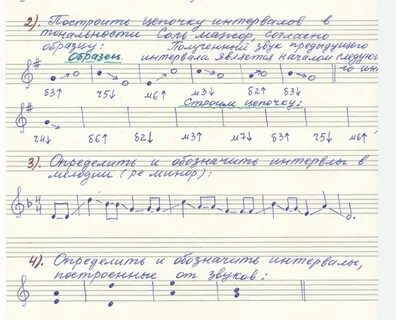 2). Построить цепочку интервалов в
тональности Соль мажор, согласно
образцу: Полученный звук предыдущего
Образец интервала является началом следующе
го ин
δ3↑ ч5↓ м6↑ м3↓ δ2↑ δ3↓
Строим цепочку:
ч4↓ δ6↑ δ2↓ м3↑ м7↓ δ3↑ ч5↓ м6↑
3). Определить и обозначить интервлы в
мелодии (ре минор):
4). Определить и обозначить интервалы,
построенные от звуков: